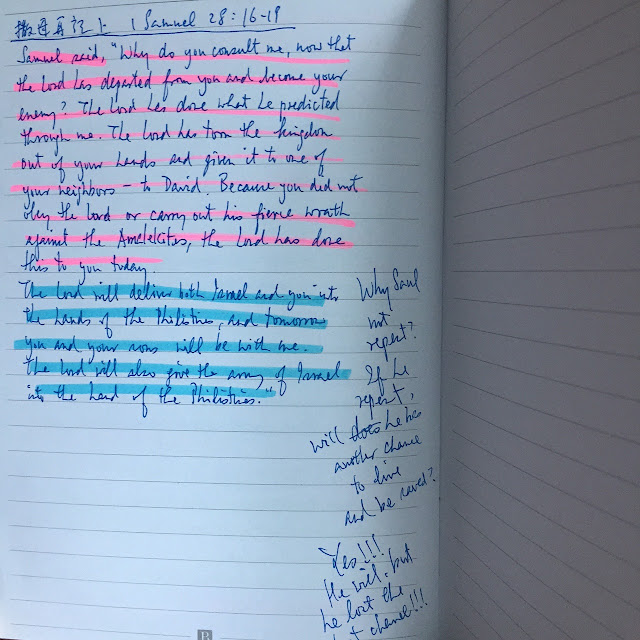 撒母耳記上 1 Samuel 28:16-19
Samuel said, "Why do you consult me, now that
the Lord has departed from you and become your
enemy? The Lord has done what he predicted
through me. The Lord has torn the kingdom
out of your hands and given it to one of
your neighbors — to David. Because you did not
obey the Lord or carry out his fierce wrath
against the Amalekites, the Lord has done
this to you today.
The Lord will deliver both Israel and you into
the hands of the Philistines, and tomorrow
you and your sons will be with me.
The Lord will also give the army of Israel
into the hand of the Philistines."
Why Saul
not
repent?
If he
repent,
will does he has
another chance
to live
and be saved?
Yes!!!
He will, but
he lost the
chance!!!